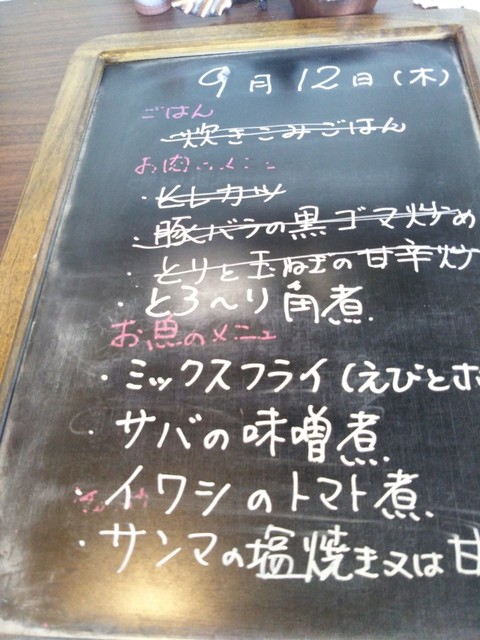 9月12日(木)
ごはん
炊きこみごはん
お肉
・ヒレカツ
・豚バラの黒ゴマ炒め
・とりと玉ねぎの甘辛炒
・とろ〜り角煮.
お魚のメニュ
・ミックスフライ(えびとホ
・サバの味噌煮.
・イワシのトマト煮.
・サンマの塩焼き又は甘